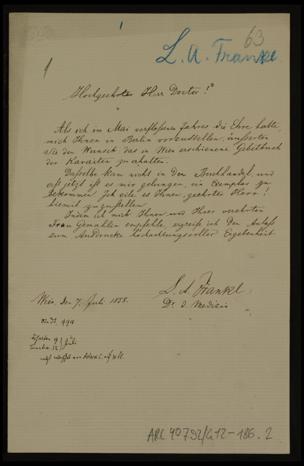 63
L. A. Frankl
Hochgeehrter Herr Doctor!
Als ich im Mai verflossenen Jahres die Ehre hatte,
mich Ihnen in Berlin vorzustellen, äußerten
Sie den Wunsch das in Wien erschienene Gebetbuch
der Karaiten zu erhalten.
Dasselbe kam nicht in den Buchhandel, und
erst jetzt ist es mir gelungen, ein Exemplar zu
bekommen. Ich eile es Ihnen, geehrter Herr!
hiemit zuzustellen.
Indem ich mich Ihnen und Ihrer verehrten
Frau Gemahlin empfehle, ergreife ich den Anlaß
zum Ausdrucke hochachtungsvoller Ergebenheit
L. A. Frankl
Dr. d. Medicin
Wien, den 7. Juli 1858.
No. 999
Juli
ARC 40792/G12-186.2